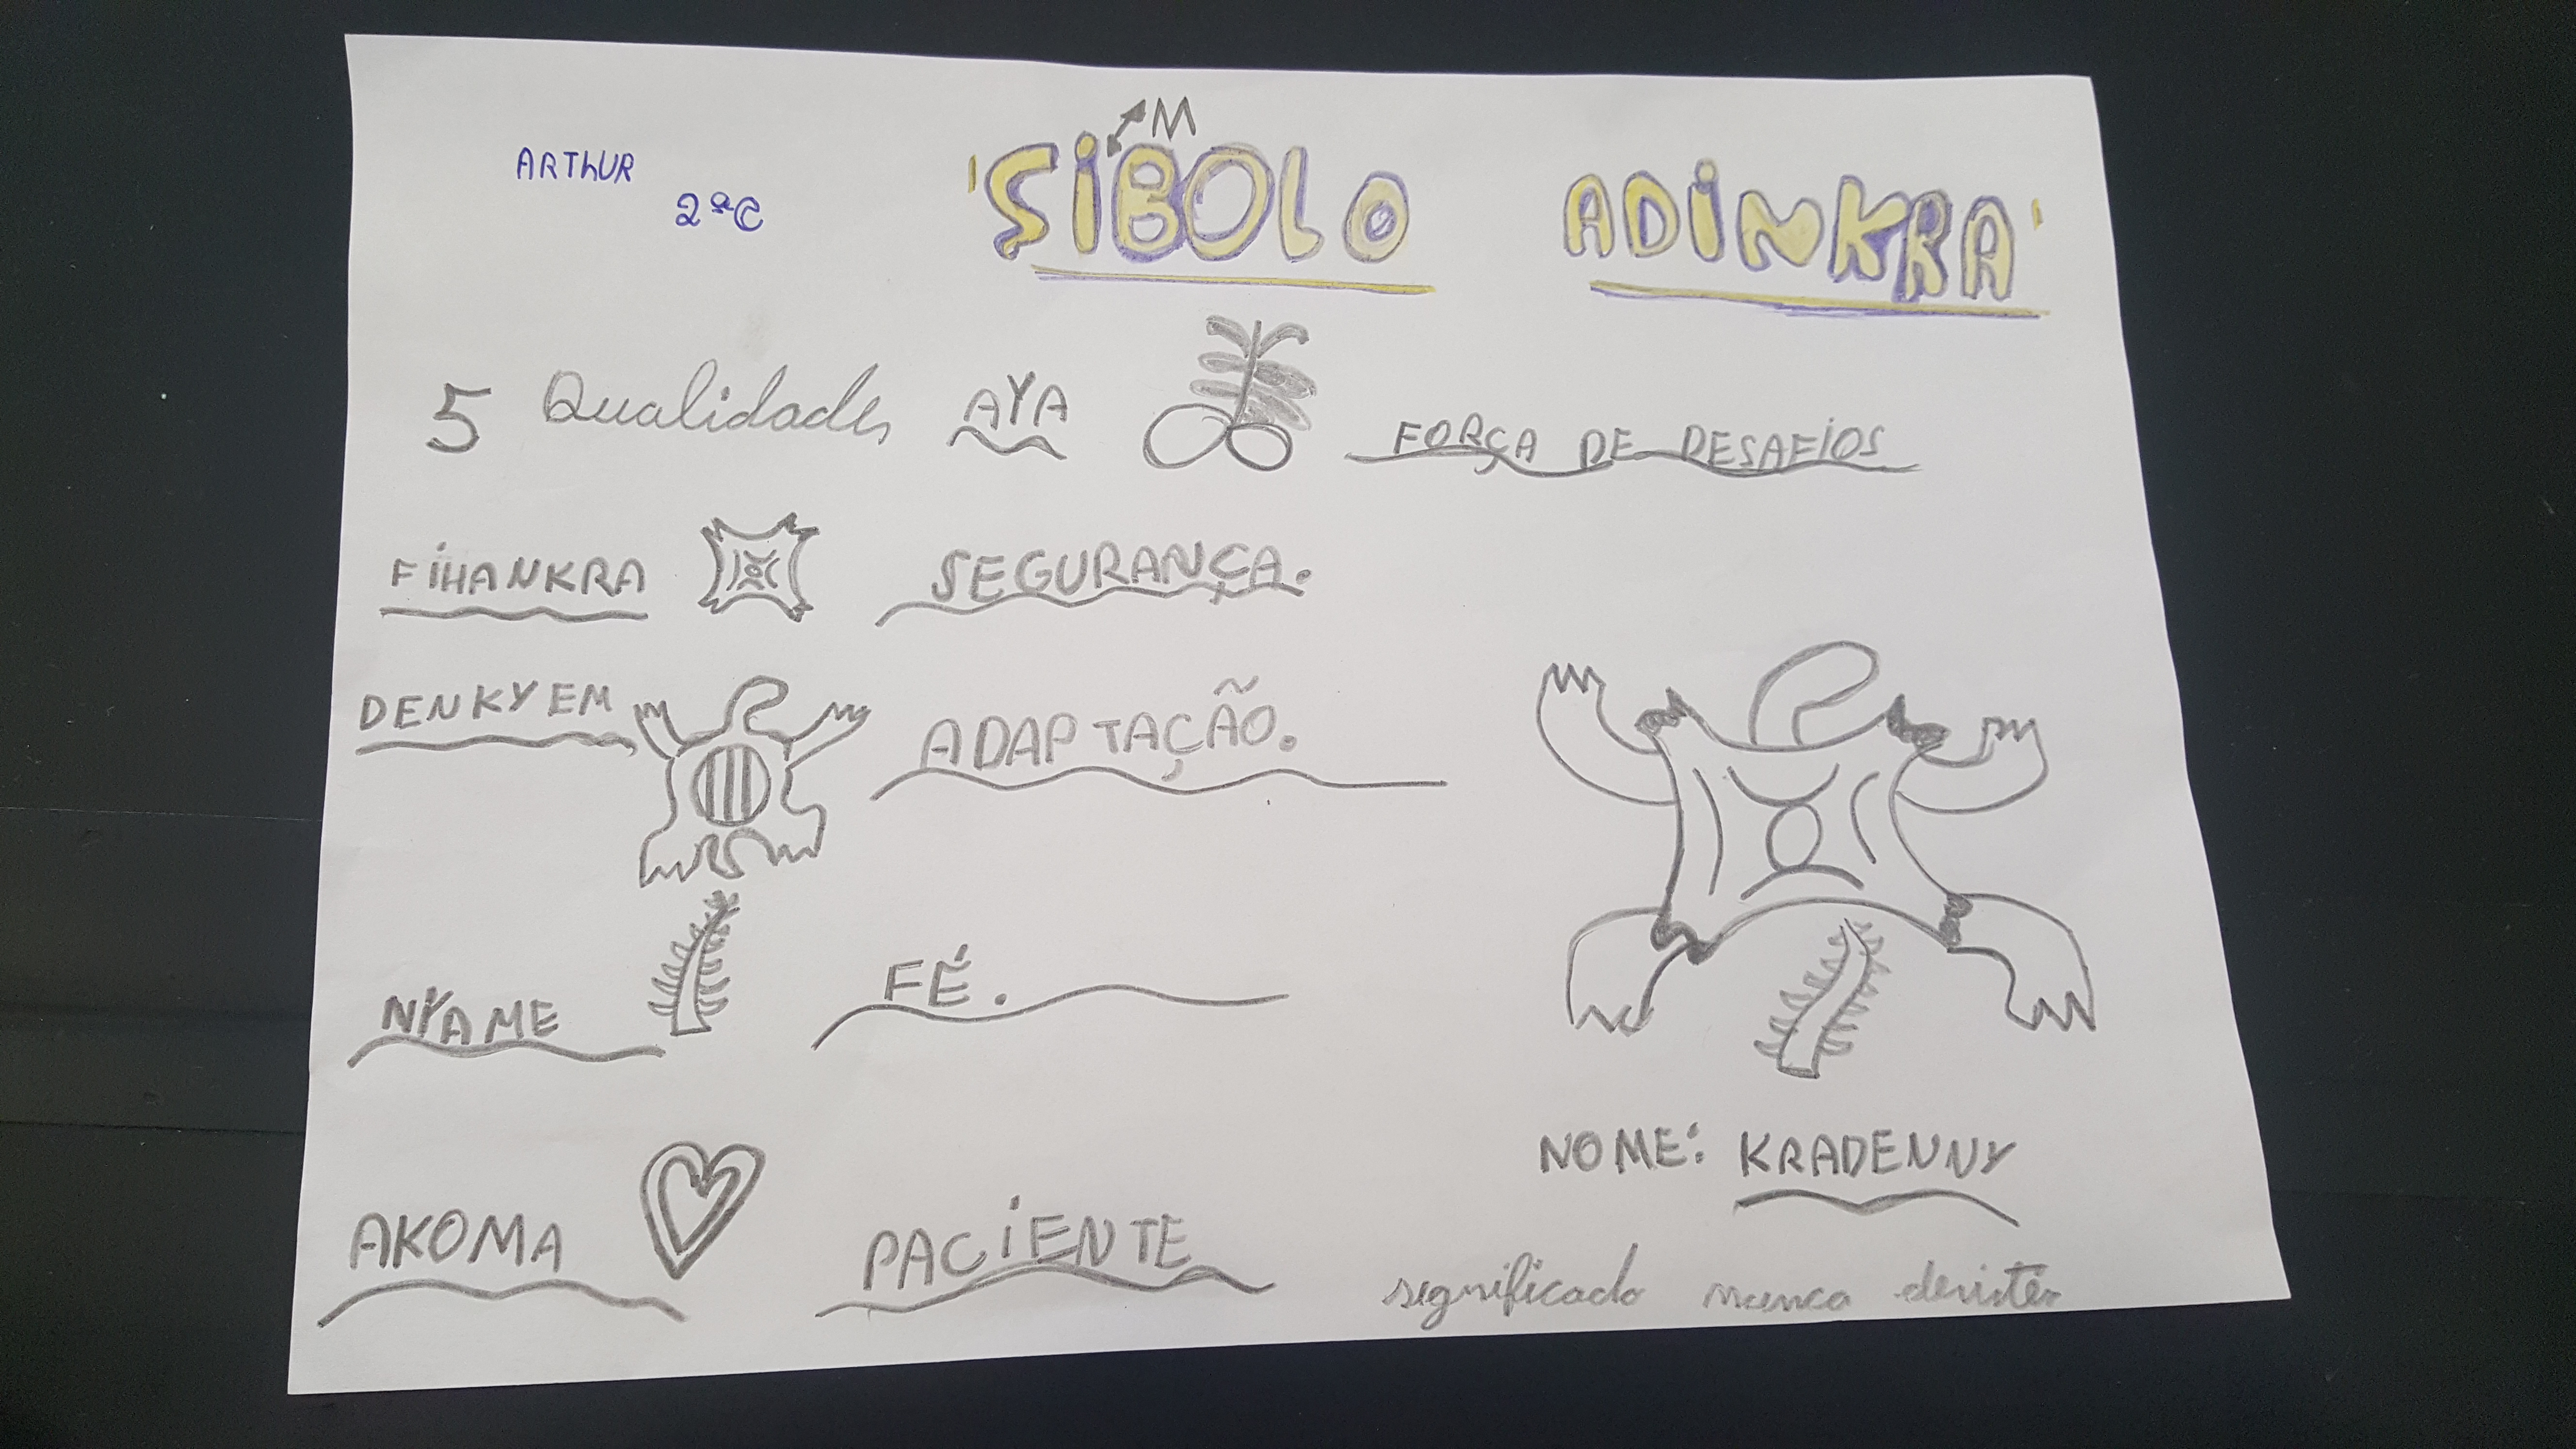 ARTHUR
2ªC
M
'SIBOLO ADINKRA'
5 Qualidades AYA FORÇA DE DESAFIOS
FIHANKRA SEGURANÇA.
DENKYEM ADAPTAÇÃO.
NYAME FÉ.
AKOMA PACIENTE
NOME: KRADENNY
significado nunca desistir